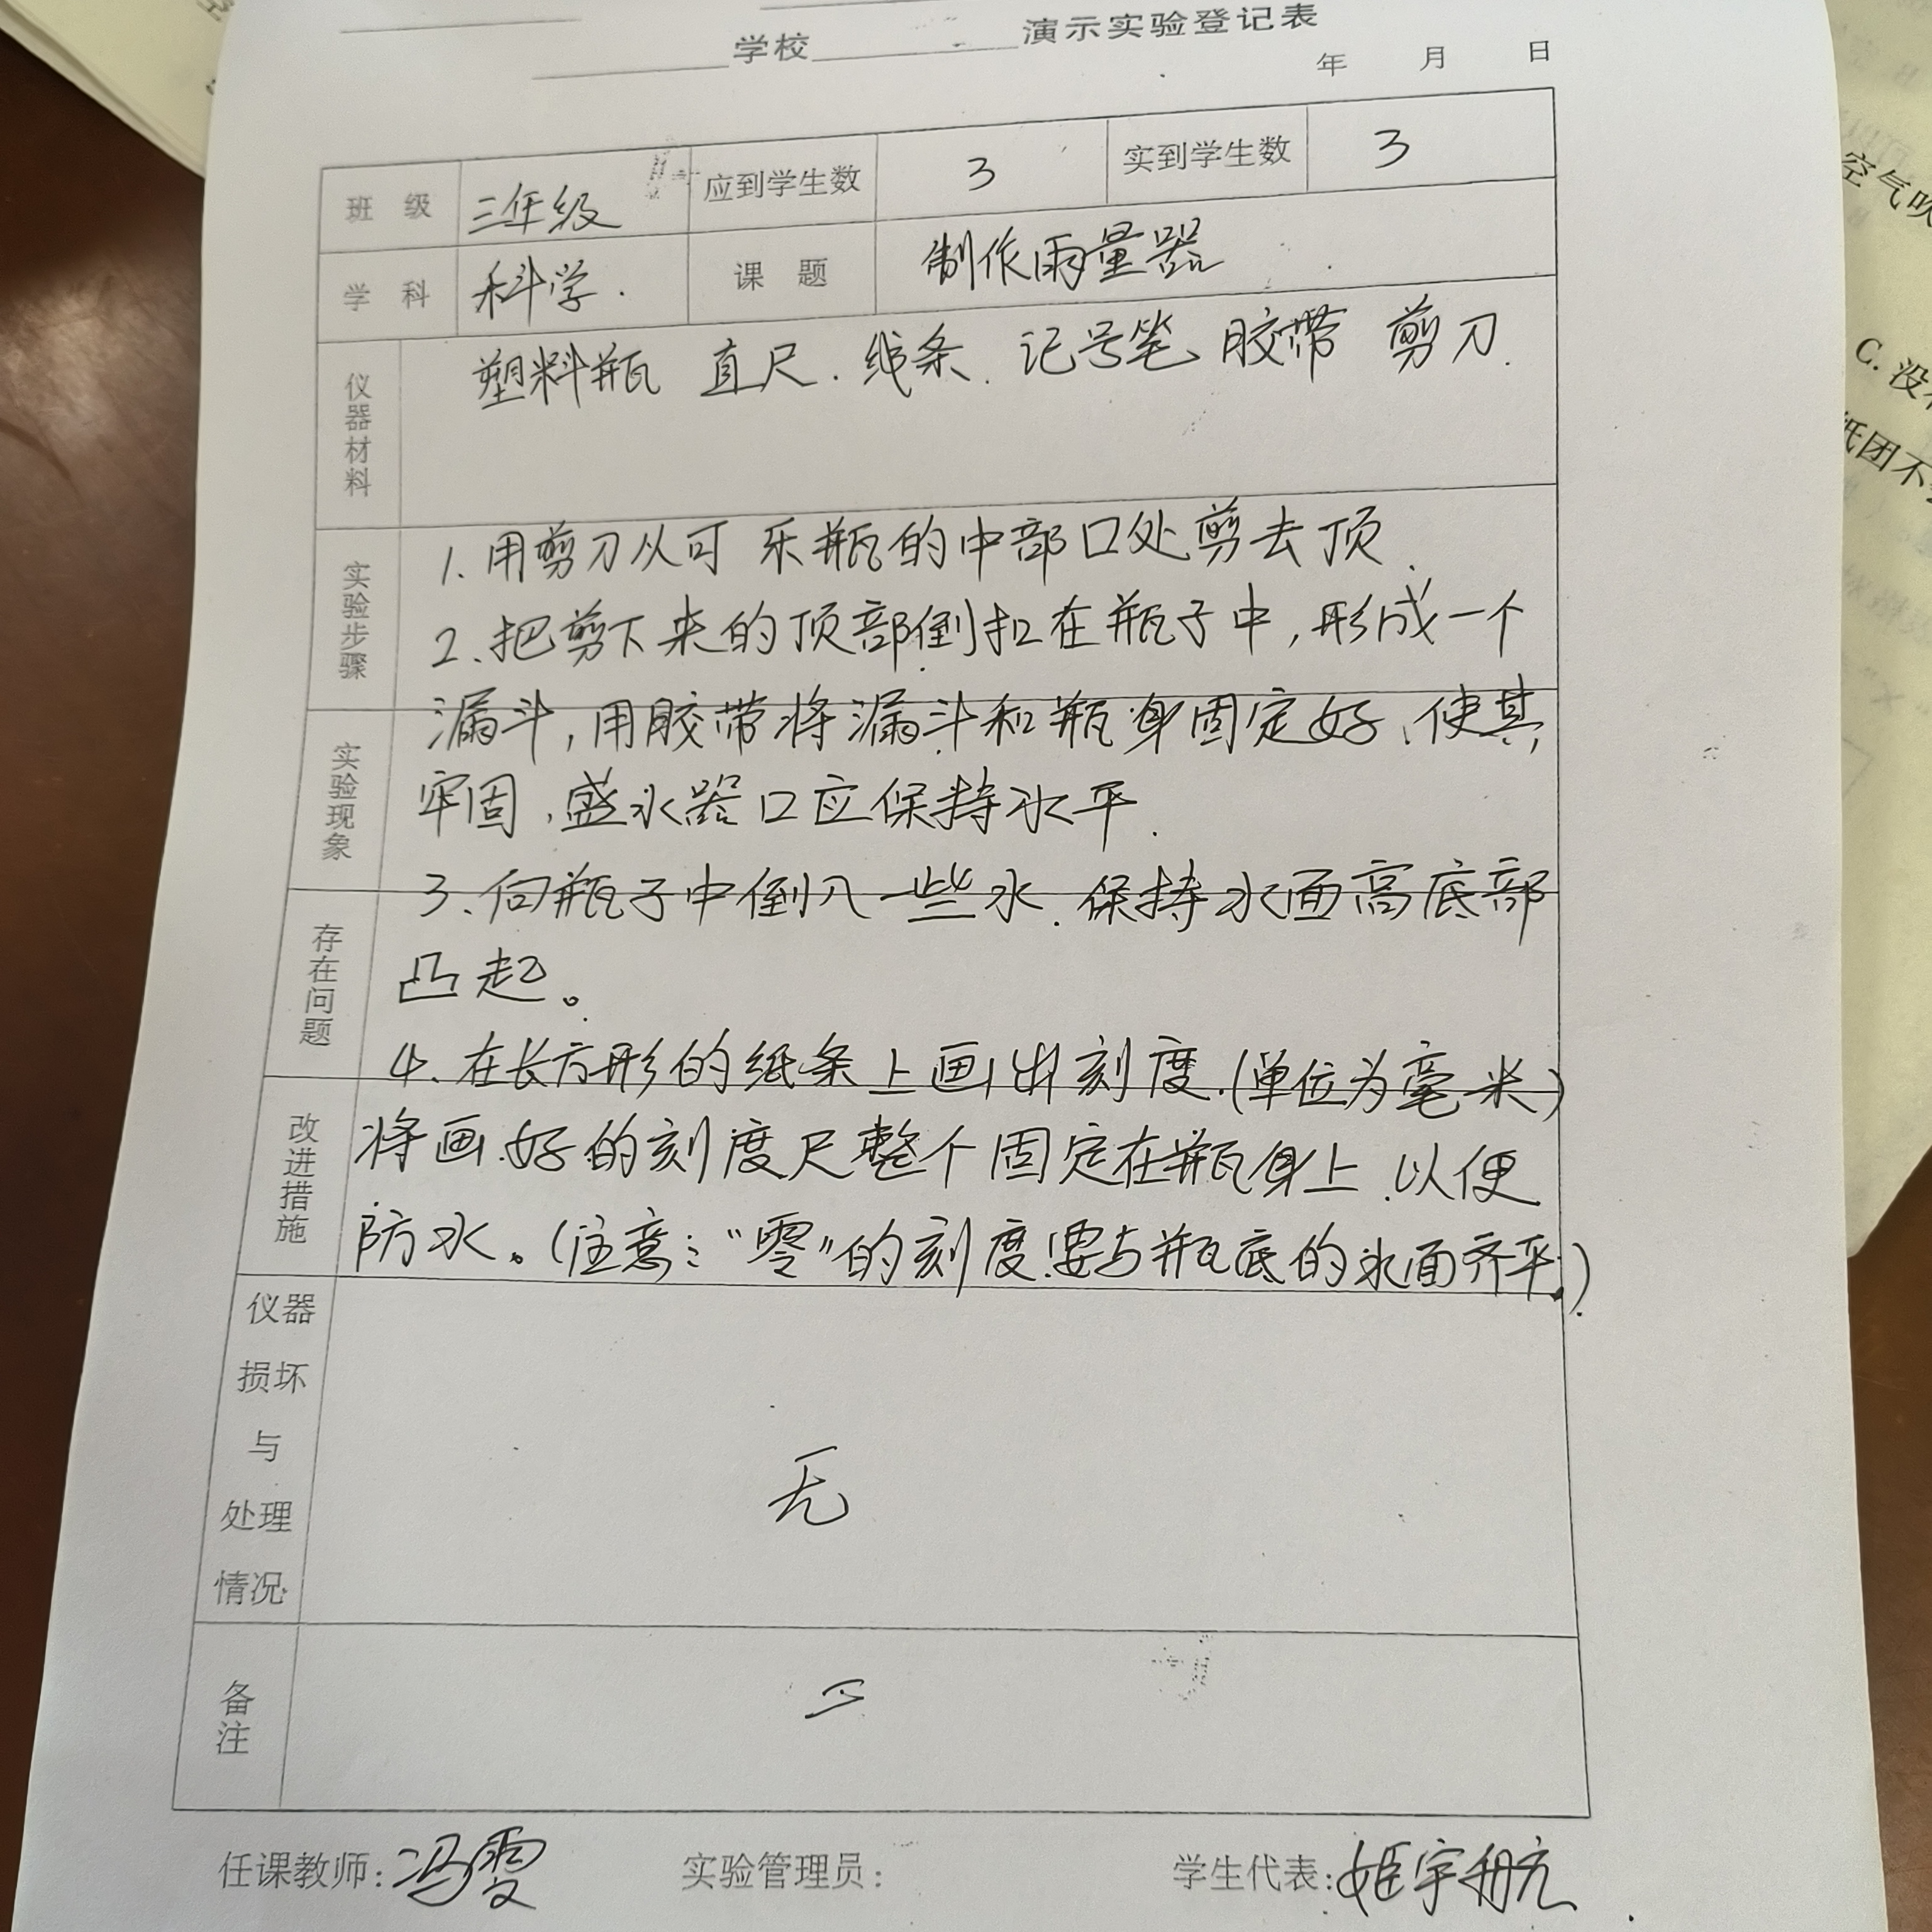 学校 演示实验登记表
年 月 日
班 级 三年级 应到学生数 3 实到学生数 3
学 科 科学. 课 题 制作雨量器
仪器材料 塑料瓶 直尺. 线条. 记号笔、胶带 剪刀.
实验步骤
1.用剪刀从可乐瓶的中部口处剪去顶.
2.把剪下来的顶部倒扣在瓶子中,形成一个
漏斗,用胶带将漏斗和瓶身固定好、使其
实验现象
牢固,盛水器口应保持水平.
3、向瓶子中倒入一些水.保持水面高底部
存在问题
凸起。
4、在长方形的纸条上画出刻度.(单位为毫米)
改进措施
将画好的刻度尺整个固定在瓶身上.以便
防水。(注意:“零”的刻度要与瓶底的水面齐平.)
仪器
损坏
与
处理
情况
无
备注
任课教师:冯雯 实验管理员: 学生代表:姬宇航
空气吹
C. 没
纸团不